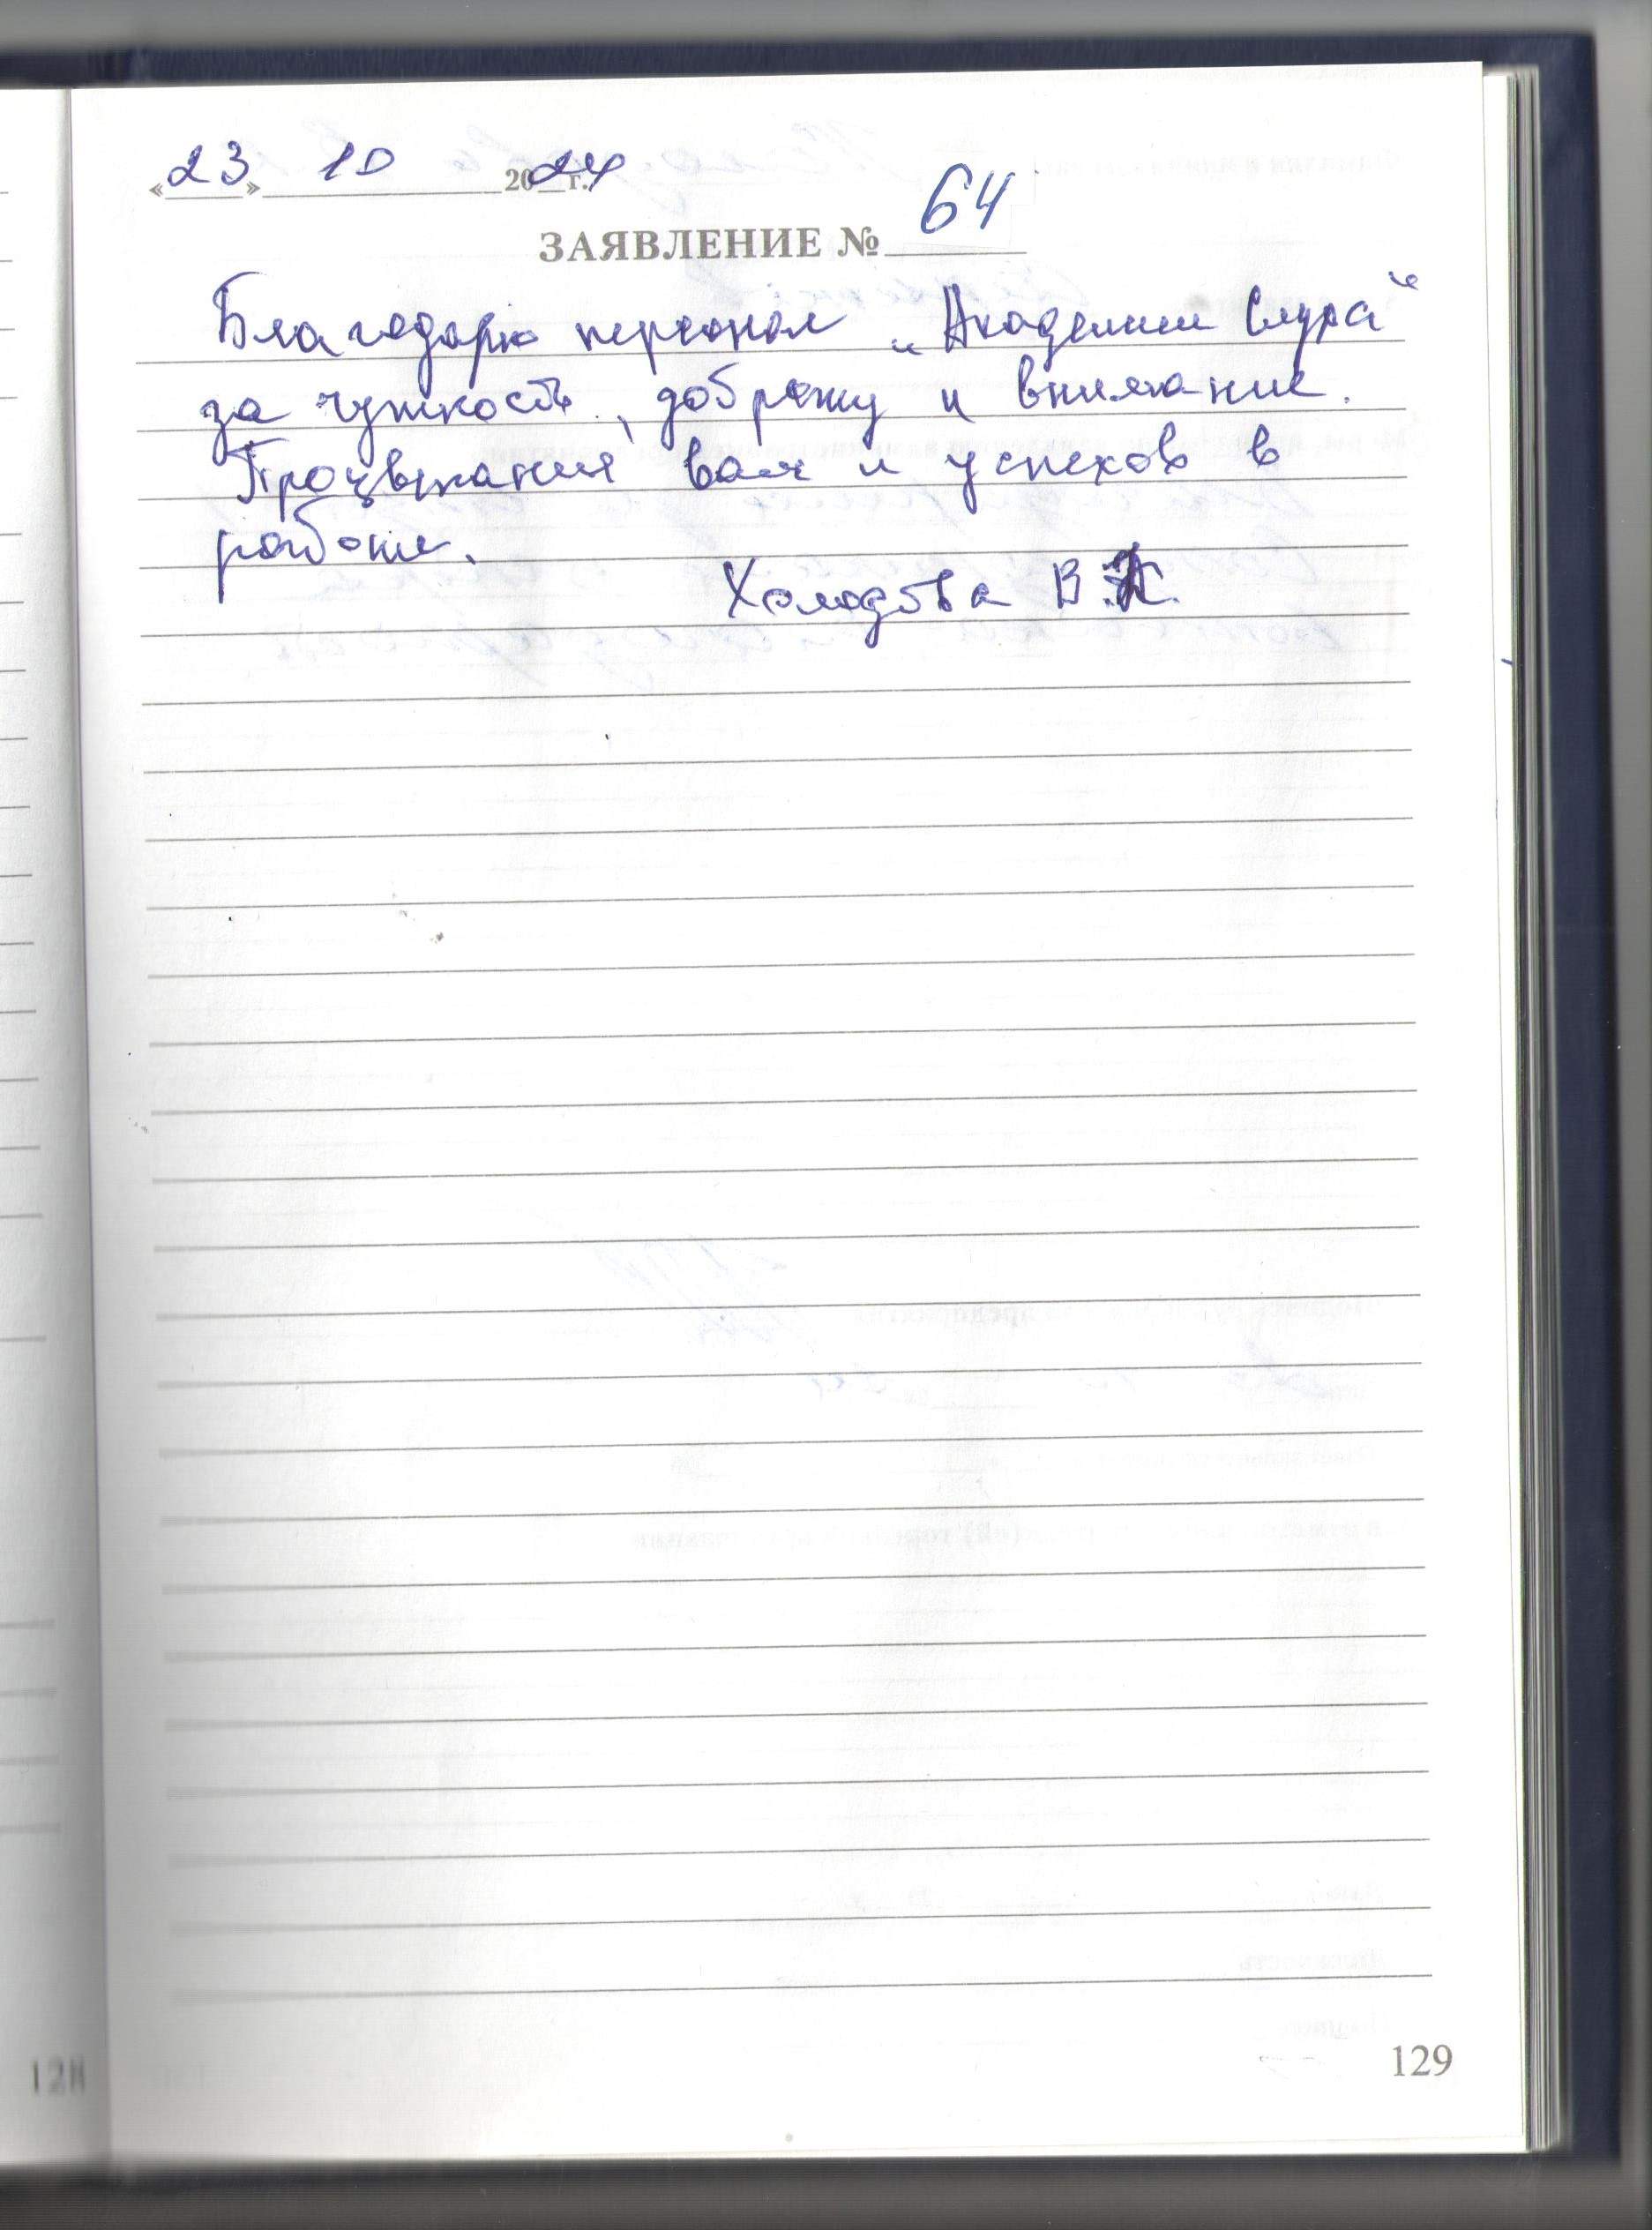 «23» 10 2024 г.
ЗАЯВЛЕНИЕ № 64
Благодарю персонал „Академии Слуха“
за чуткость, доброту и внимание.
Процветания вам и успехов в
работе.
Холодова В.
128
129